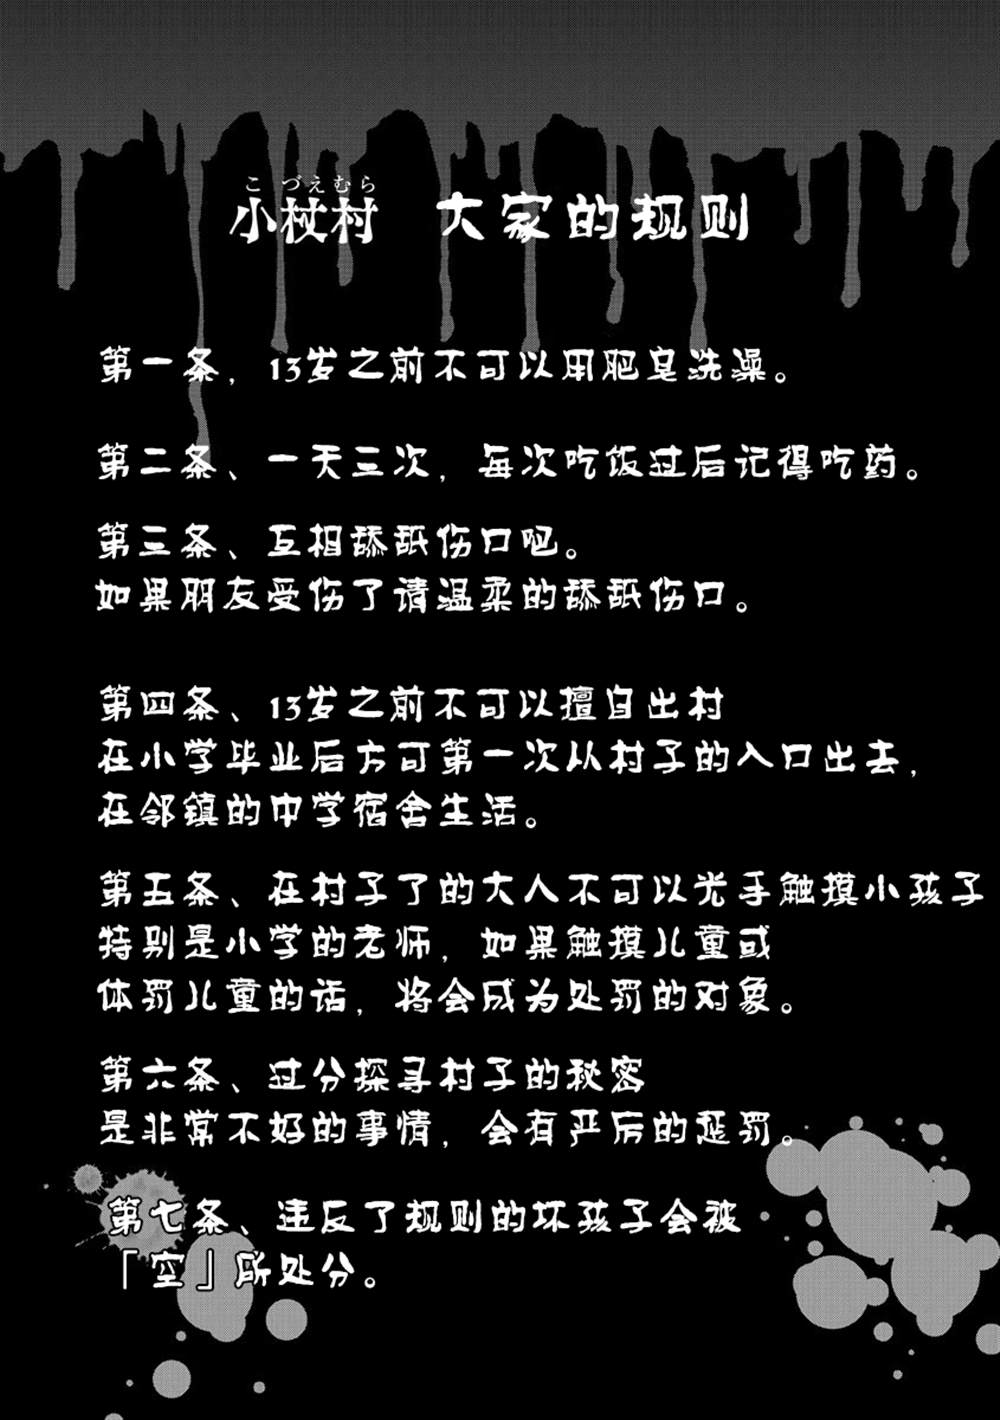 こづえむら
小杖村 大家的规则
第一条，13岁之前不可以用肥皂洗澡。
第二条、一天三次，每次吃饭过后记得吃药。
第三条、互相舔舐伤口吧。
如果朋友受伤了请温柔的舔舐伤口。
第四条、13岁之前不可以擅自出村
在小学毕业后方可第一次从村子的入口出去，
在邻镇的中学宿舍生活。
第五条、在村子了的大人不可以光手触摸小孩子
特别是小学的老师，如果触摸儿童或
体罚儿童的话，将会成为处罚的对象。
第六条、过分探寻村子的秘密
是非常不好的事情，会有严厉的惩罚。
第七条、违反了规则的坏孩子会被
「空」所处分。